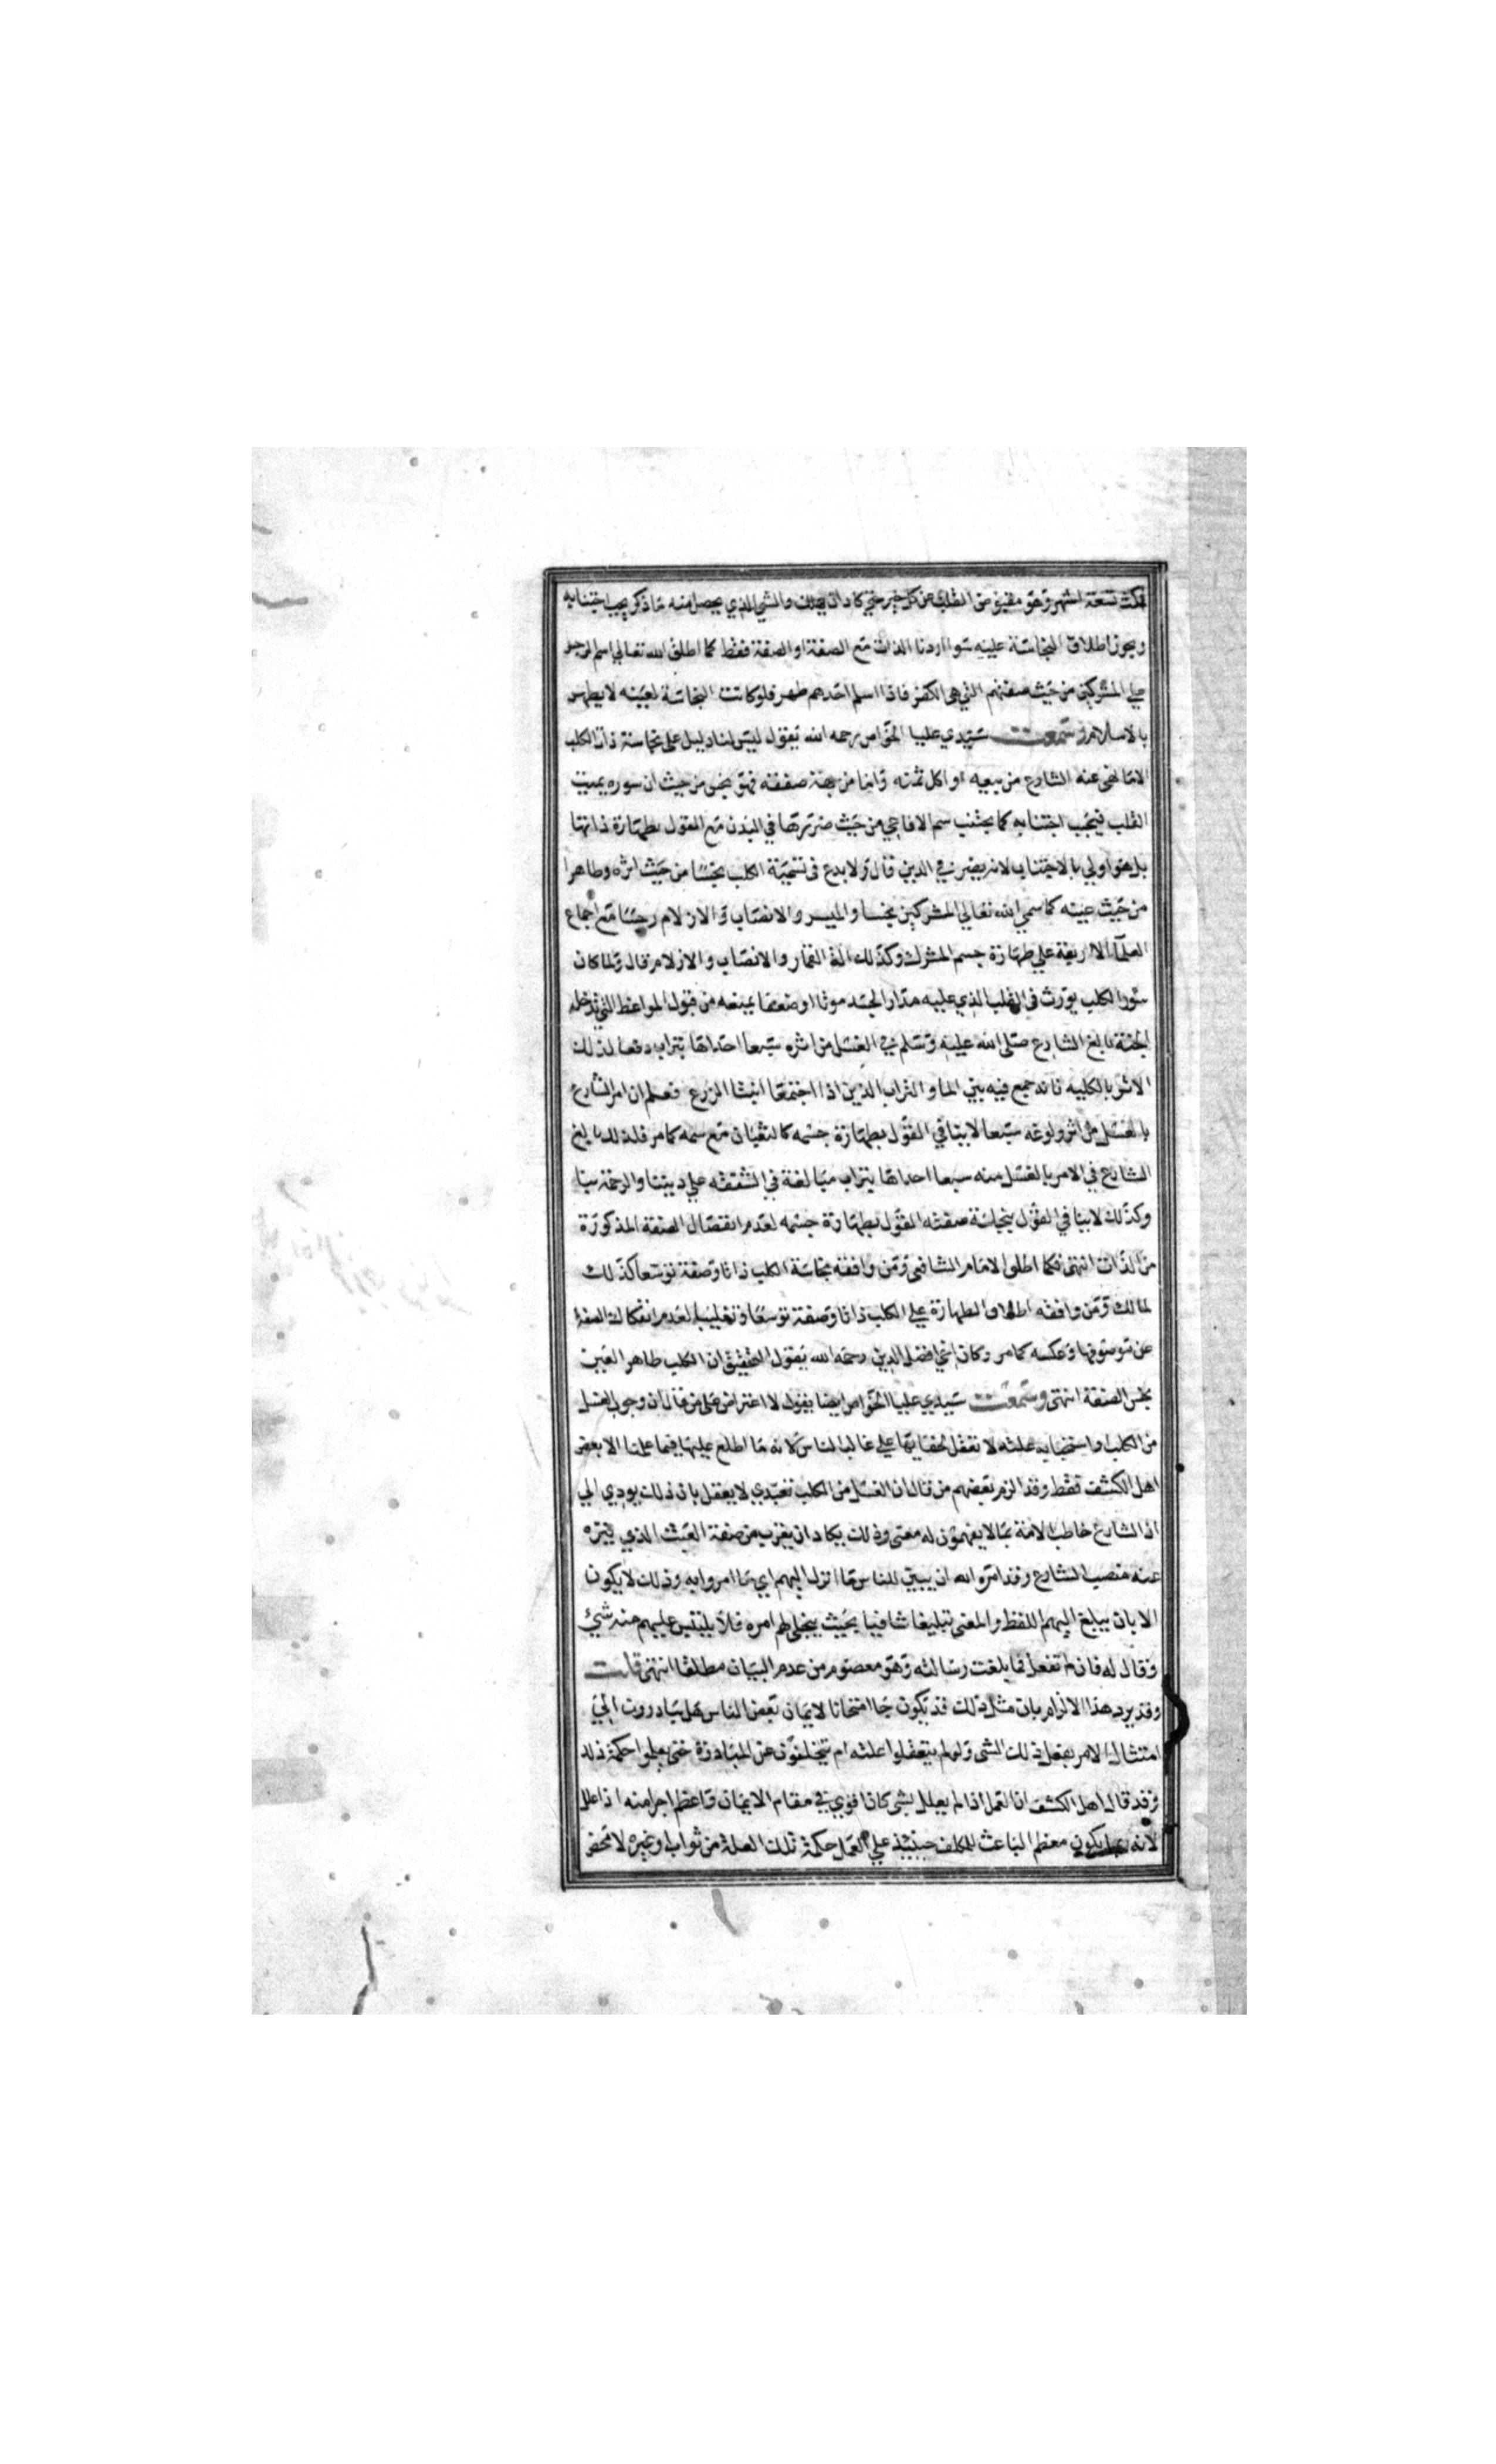 فمكث تسعة اشهر وهو مقبوض القلب عن كل خير حتي كاد ان يهلك والشي الذي يحصل منه ما ذكر يجب اجتنابه
ويجوز اطلاق النجاسة عليه سوا اردنا الذات مع الصفة او الصفة فقط كما اطلق الله تعالي اسم الرجس
علي المشركين من حيث صفتهم التي هي الكفر فاذا اسلم احدهم طهر فلو كانت النجاسة لعينه لا يطهر
بالاسلام وسمعت سيدي عليا الخواص رحمه الله يقول ليس لنا دليل علي نجاسة ذات الكلب
الا ما نهي عنه الشارع من بيعه او اكل ثمنه واما من جهة صفته فهو نجس من حيث ان سوره يميت
القلب فيجب اجتنابه كما يجتنب سم الافاعي من حيث ضررها في البدن مع القول بطهارة ذاتها
بل هو اولي بالاجتناب لانه يضر في الدين قال ولا بدع في تسمية الكلب نجسا من حيث اثره وطاهرا
من حيث عينه كما سمي الله تعالي المشركين نجسا والميسر والانصاب والازلام رجسا مع اجماع
العلما الاربعة علي طهارة جسم المشرك وكذلك الة القمار والانصاب والازلام قال ولما كان
سور الكلب يورث في القلب الذي عليه مدار الجسد موتا او ضعفا يمنعه من قبول المواعظ التي تدخله
الجنة بالغ الشارع صلي الله عليه وسلم في الغسل من اثره سبعا احداها بتراب دفعا لذلك
الاثر بالكلية فانه جمع فيه بين الما والتراب الذين اذا اجتمعا انبتا الزرع فعلم ان امر الشارع
بالغسل من اثر ولوغه سبعا لا ينافي القول بطهارة جسمه كالثعبان مع سمه كما مر فلذلك بالغ
الشارع في الامر بالغسل منه سبعا احداها بتراب مبالغة في الشفقة علي ديننا والرحمة بنا
وكذلك لا ينافي القول بنجاسة صفته القول بطهارة جسمه لعدم انفصال الصفة المذكورة
من الذات انتهي فكما اطلق الامام الشافعي ومن وافقه نجاسة الكلب ذاتا وصفة توسعا كذلك
لمالك ومن وافقه اطلاق الطهارة علي الكلب ذاتا وصفة توسعا وتغليبا لعدم انفكاك الصفة
عن موصوفها وعكسه كما مر وكان اخي افضل الدين رحمه الله يقول التحقيق ان الكلب طاهر العين
نجس الصفة انتهي وسمعت سيدي عليا الخواص ايضا يقول لا اعتراض علي من قال ان وجوب الغسل
من الكلب واستخبابه علته لا تعقل لخفايها علي غالب الناس لانه ما اطلع عليها فيما علمنا الا بعض
اهل الكشف فقط وقد الزم بعضهم من قال ان الغسل من الكلب تعبدي لا يعقل بان ذلك يودي الي
ان الشارع خاطب الامة بما لا يفهمون له معني وذلك يكاد ان يقرب من صفة العبث الذي ينزه
عنه منصب الشارع وقد امره الله ان يبين للناس ما انزل اليهم اي ما امروا به وذلك لا يكون
الا بان يبلغ اليهم اللفظ والمعني تبليغا شافيا بحيث ينجلي لهم امره فلا يلتبس عليهم منه شيئ
وقال له فان لم تفعل فما بلغت رسالته وهو معصوم من عدم البيان مطلقا انتهي قلت
وقد يرد هذا الالزام بان مثل ذلك قد يكون جا امتحانا لايمان بعض الناس هل يبادرون الي
امتثال الامر بفعل ذلك الشي ولو لم يتعقلوا علته ام يتخلفون عن المبادرة حتي يعلموا حكمة ذلك
وقد قال اهل الكشف ان العمل اذا لم يعلل بشي كان اقوي في مقام الايمان واعظم اجرا منه اذا علل
لانه يكون معظم الباعث للمكلف حينيذ علي العمل حكمة تلك العلة من ثواب وغيره لا محض